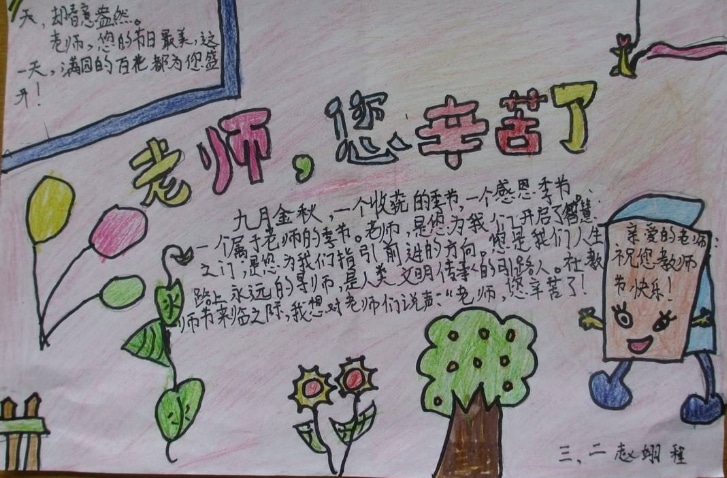 天，却春意盎然。
老师，您的节日最美，这
一天，满园的百花都为您盛
开！
老师，您辛苦了
九月金秋，一个收获的季节，一个感恩季节，
一个属于老师的季节。老师，是您为我们开启了智慧
之门，是您为我们指引前进的方向。您是我们人生
路上永远的导师，是人类文明传承的引路人。在教
师节来临之际，我想对老师们说声“老师，您辛苦了！
亲爱的老师：
祝您教师
节快乐！
三、二 赵翊程